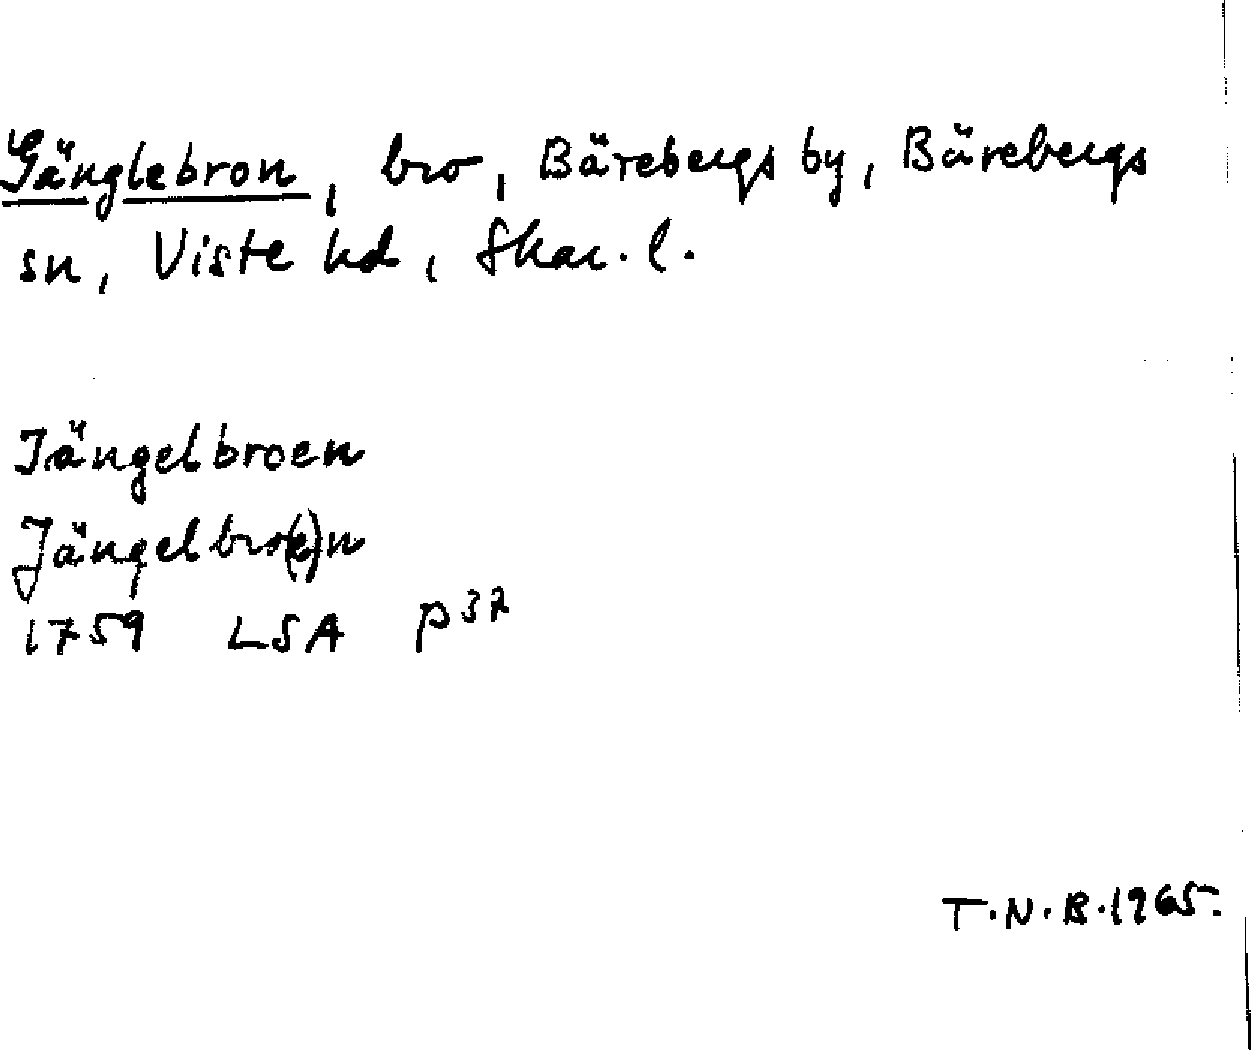 Gänglebron, bro, Bärebergs by, Bärebergs
sn, Viste hd, Skar. l.
Jängelbroen
Jängelbro(e)n
1759 LSA p37
T.N.B.1965.